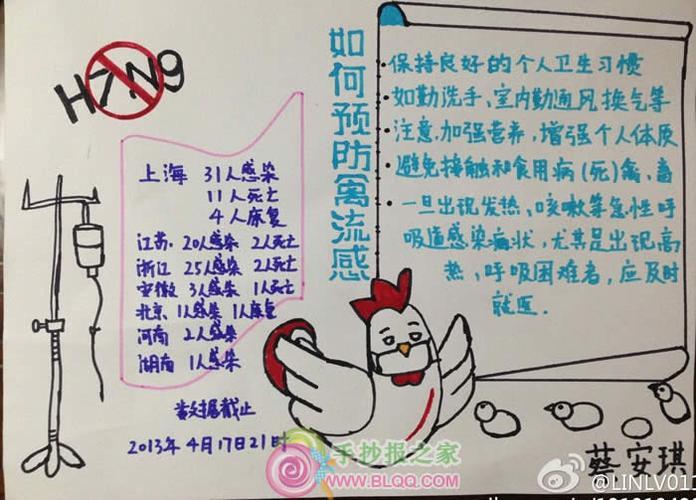 H7N9
上海 31人感染
11人死亡
4人康复
江苏 20人感染 2人死亡
浙江 25人感染 2人死亡
安徽 3人感染 1人死亡
北京 1人感染 1人康复
河南 2人感染
湖南 1人感染
数据截止
2013年4月17日21时
如何预防禽流感
保持良好的个人卫生习惯
如勤洗手、室内勤通风换气等
注意加强营养,增强个人体质
避免接触和食用病(死)禽、畜
一旦出现发热、咳嗽等急性呼
吸道感染病状,尤其是出现高
热、呼吸困难者,应及时
就医.
蔡安琪
手抄报之家
WWW.BLQQ.COM